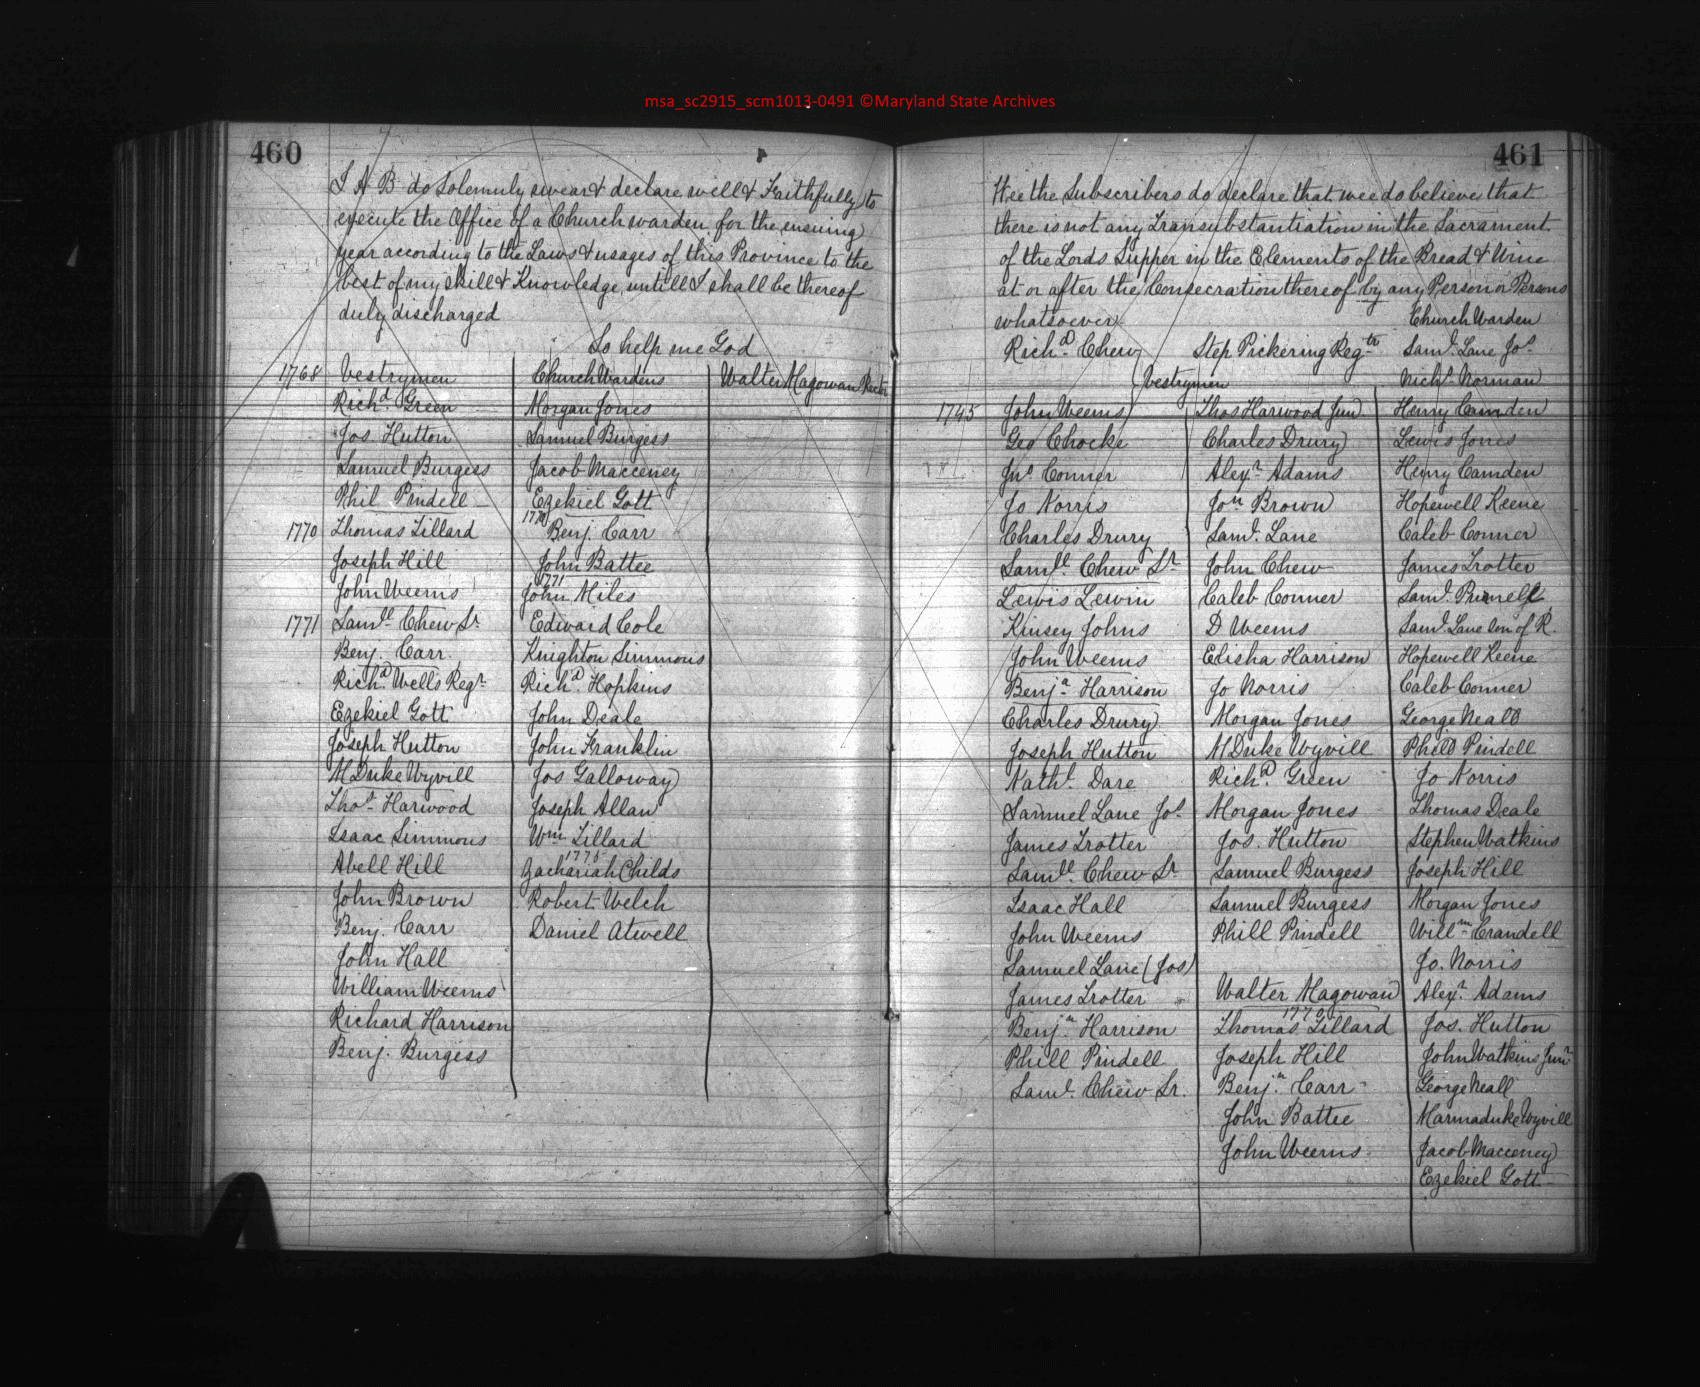 msa_sc2915_scm1013-0491 ©Maryland State Archives
460
I A B do Solemnly swear & declare well & Faithfully to
execute the Office of a Church warden for the ensuing
year according to the Laws & usages of this Province to the
best of my skill & Knowledge untill I shall be thereof
duly discharged
So help me God
1768 Vestrymen Church Wardens Walter Magowan Rector
Richd. Green Morgan Jones
Jos. Hutton Samuel Burgess
Samuel Burgess Jacob Macceney
Phil Pindell Ezekiel Gott
1770
1770 Thomas Tillard Benj. Carr
Joseph Hill John Battee
1771
John Weems John Miles
1771 Samle Chew Sr. Edward Cole
Benj. Carr Knighton Simmons
Richd. Wells Regr. Richd. Hopkins
Ezekiel Gott John Deale
Joseph Hutton John Franklin
M Duke Wyvill Jos Galloway
Thos. Harwood Joseph Allan
Isaac Simmons Wm Tillard
1775
Abell Hill Zachariah Childs
John Brown Robert Welch
Benj. Carr Daniel Atwell
John Hall
William Weems
Richard Harrison
Benj. Burgess
461
Wee the Subscribers do declare that wee do believe that
there is not any Transubstantiation in the Sacrament
of the Lords Supper in the Elements of the Bread & Wine
at or after the Consecration thereof by any Person or Persons
whatsoever Church Warden
Richd. Chew Step Pickering Regtr Saml. Lane Jos.
Vestrymen Nichs. Norman
1745 John Weems Thos Harwood Jun Henry Camden
Geo Chocke Charles Drury Lewis Jones
Jno Conner Alexr. Adams Henry Camden
Jo Norris Jon Brown Hopewell Keene
Charles Drury Saml. Lane Caleb Conner
Samle. Chew Sr. John Chew James Trotter
Lewis Lewin Caleb Conner Saml.
Kinsey Johns D Weems Saml. Lane son of R.
John Weems Elisha Harrison Hopewell Keene
Benja. Harrison Jo Norris Caleb Conner
Charles Drury Morgan Jones George Neall
Joseph Hutton M Duke Wyvill Phill Pindell
Nathl. Dare Richd. Green Jo Norris
Samuel Lane Jos. Morgan Jones Thomas Deale
James Trotter Jos. Hutton Stephen Watkins
Samle. Chew Sr. Samuel Burgess Joseph Hill
Isaac Hall Samuel Burgess Morgan Jones
John Weems Phill Pindell Willm Crandell
Samuel Lane (Jos) Jo. Norris
James Trotter Walter Magowan Alexr. Adams
1770
Benjn. Harrison Thomas Tillard Jos. Hutton
Phill Pindell Joseph Hill John Watkins Junr
Saml. Chew Sr. Benjn. Carr George Neall
John Battee Marmaduke Wyvill
John Weems Jacob Macceney
Ezekiel Gott